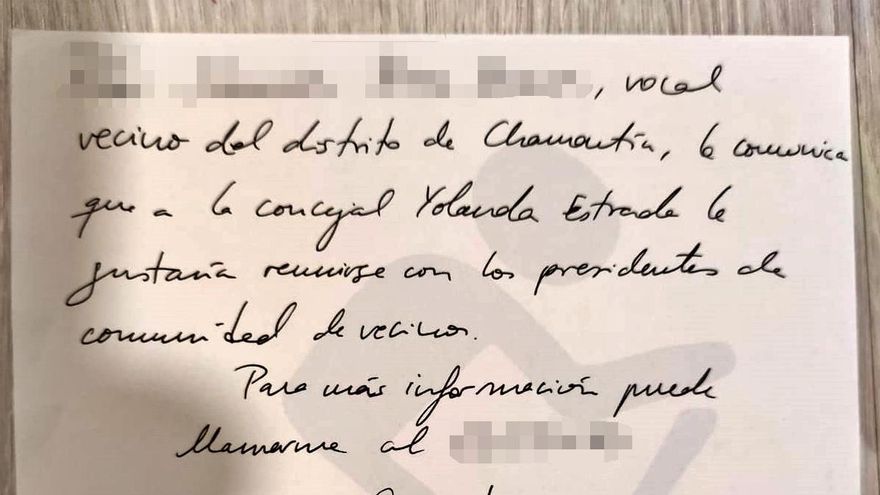 , vocal
vecino del distrito de Chamartín, le comunica
que a la concejal Yolanda Estrada le
gustaría reunirse con los presidentes de
comunidad de vecinos.
Para más información puede
llamarme al